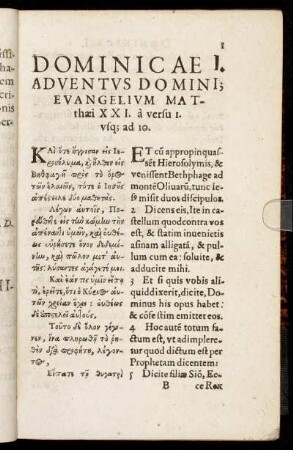 1
DOMINICAE I.
ADVENTVS DOMINI;
EVANGELIVM MAT-
thæi XXI. à versu 1.
vsq; ad 10.
Καὶ ὅτε ἤγγισαν εἰς Ἱε-
ροσόλυμα, καὶ ἦλθον εἰς
Βηθφαγῆ πρὸς τὸ ὄρος
τῶν ἐλαιῶν, τότε ὁ Ἰησοῦς
ἀπέστειλε δύο μαθητάς.
Λέγων αὐτοῖς, Πο-
ρεύθητε εἰς τὴν κώμην τὴν
ἀπέναντι ὑμῶν, καὶ εὐθέ-
ως εὑρήσετε ὄνον δεδεμέ-
νην, καὶ πῶλον μετ' αὐ-
τῆς· λύσαντες ἀγάγετέ μοι.
Καὶ ἐάν τις ὑμῖν εἴπῃ
τὶ, ἐρεῖτε, ὅτι ὁ Κύριος αὐ-
τῶν χρείαν ἔχει· εὐθέως
δὲ ἀποστελεῖ αὐτούς.
Τοῦτο δὲ ὅλον γέγο-
νεν, ἵνα πληρωθῇ τὸ ῥηθὲν
διὰ τοῦ προφήτου, λέγον-
τος,
Εἴπατε τῇ θυγατρὶ
ET cū appropinquas-
sēt Hierosolymis, &
venissent Bethphage ad
montē Oliuarū, tunc Ie-
sus misit duos discipulos.
2 Dicens eis, Ite in ca-
stellum quod contra vos
est, & statim inuenietis
asinam alligatā, & pul-
lum cum ea: soluite, &
adducite mihi.
3 Et si quis vobis ali-
quid dixerit, dicite, Do-
minus his opus habet;
& cōfestim emittet eos.
4 Hoc autē totum fa-
ctum est, vt adimplere-
tur quod dictum est per
Prophetam dicentem:
5 Dicite filiæ Siō, Ec-
B ce Rex